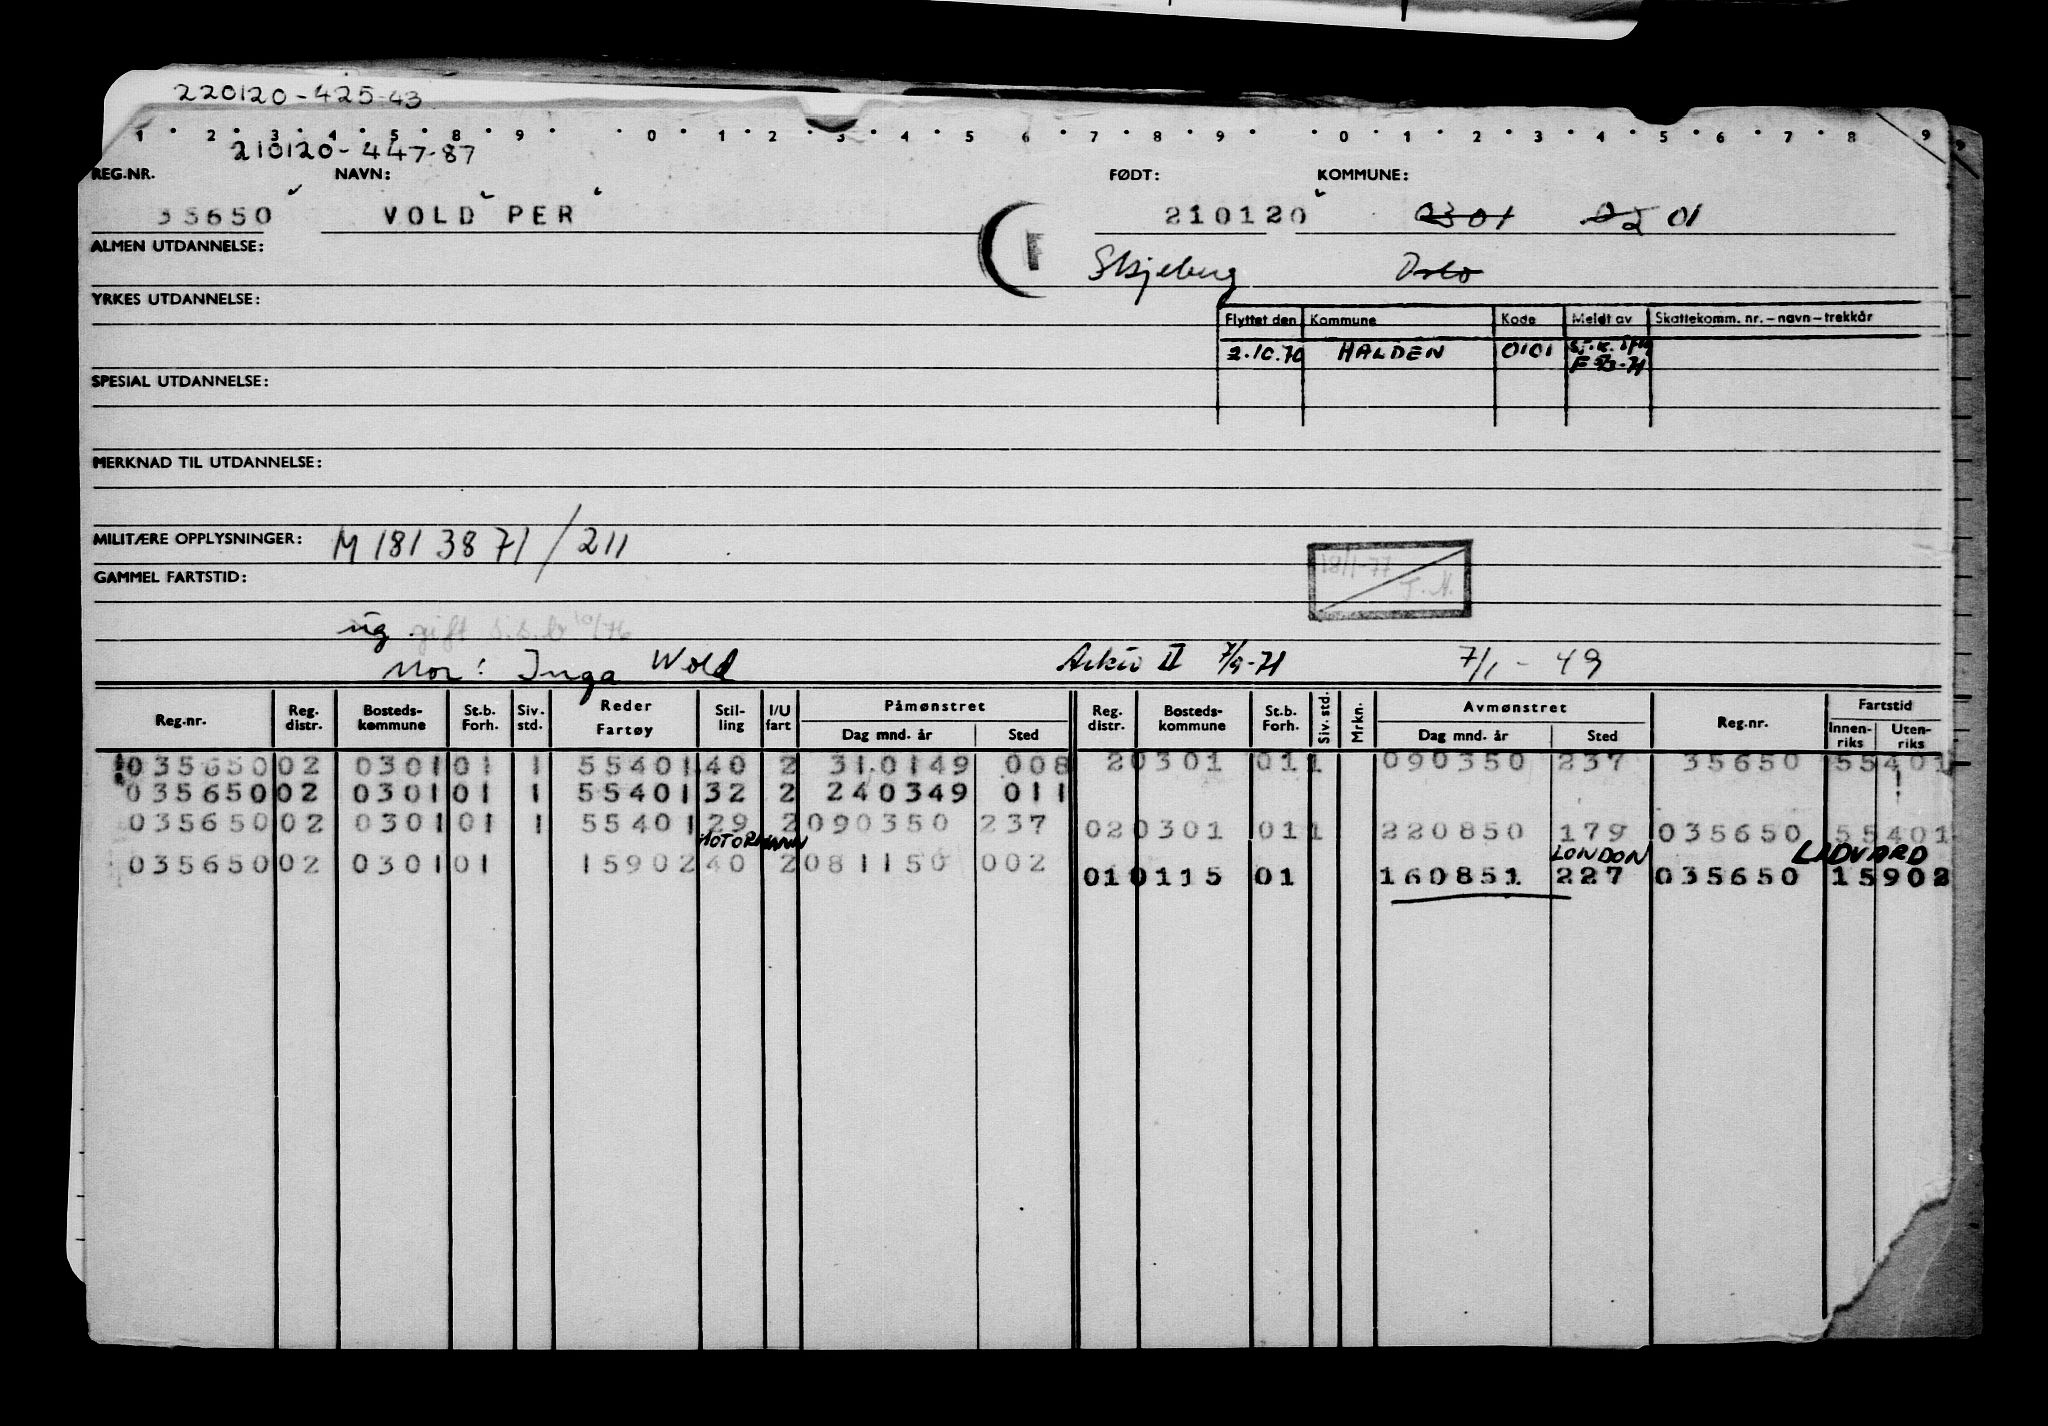 220120-425-43
1 2 3 4 5 8 9 0 1 2 3 4 5 6 7 8 9 0 1 2 3 4 5 6 7 8 9
210120-447-87
REG.NR. NAVN: FØDT: KOMMUNE:
35650 VOLD PER 210120 0301 02 01
ALMEN UTDANNELSE: F Skjeberg Oslo
YRKES UTDANNELSE:
Flyttet den Kommune Kode Meldt av Skattekomm. nr. – navn – trekkår
2.10.70 HALDEN 0101
SPESIAL UTDANNELSE:
MERKNAD TIL UTDANNELSE:
MILITÆRE OPPLYSNINGER: M 181 38 71/211
GAMMEL FARTSTID: 18/1-77 T.N.
ug. gift 10/76
Mor: Inga Wold Arkiv II 7/9-71 7/1-49
Reg.nr. Reg. distr. Bosteds-kommune St.b. Forh. Siv. std. Reder Fartøy Stil-ling I/U fart Påmønstret Dag mnd. år Sted Reg. distr. Bosteds-kommune St.b. Forh. Siv. std. Mrkn. Avmønstret Dag mnd. år Sted Reg.nr. Fartstid Innen-riks Uten-riks
035650 02 0301 01 1 55401 40 2 310149 008 2 0301 01 1 090350 237 35650 55401
035650 02 0301 01 1 55401 32 2 240349 011
035650 02 0301 01 1 55401 29 2 090350 237 02 0301 01 1 220850 179 035650 55401
MOTORMANN LONDON LIDVARD
035650 02 0301 01 15902 40 2 081150 002 01 0115 01 160851 227 035650 15902